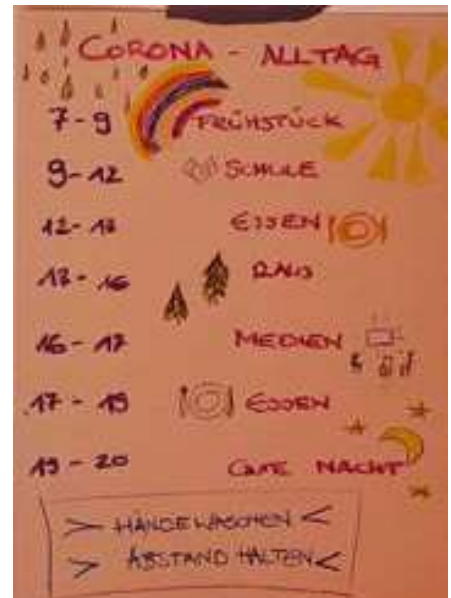 CORONA - ALLTAG
7-9 FRÜHSTÜCK
9-12 SCHULE
12-13 ESSEN
13-16 RAUS
16-17 MEDIEN
17-19 ESSEN
19-20 GUTE NACHT
> HÄNDEWASCHEN <
> ABSTAND HALTEN <